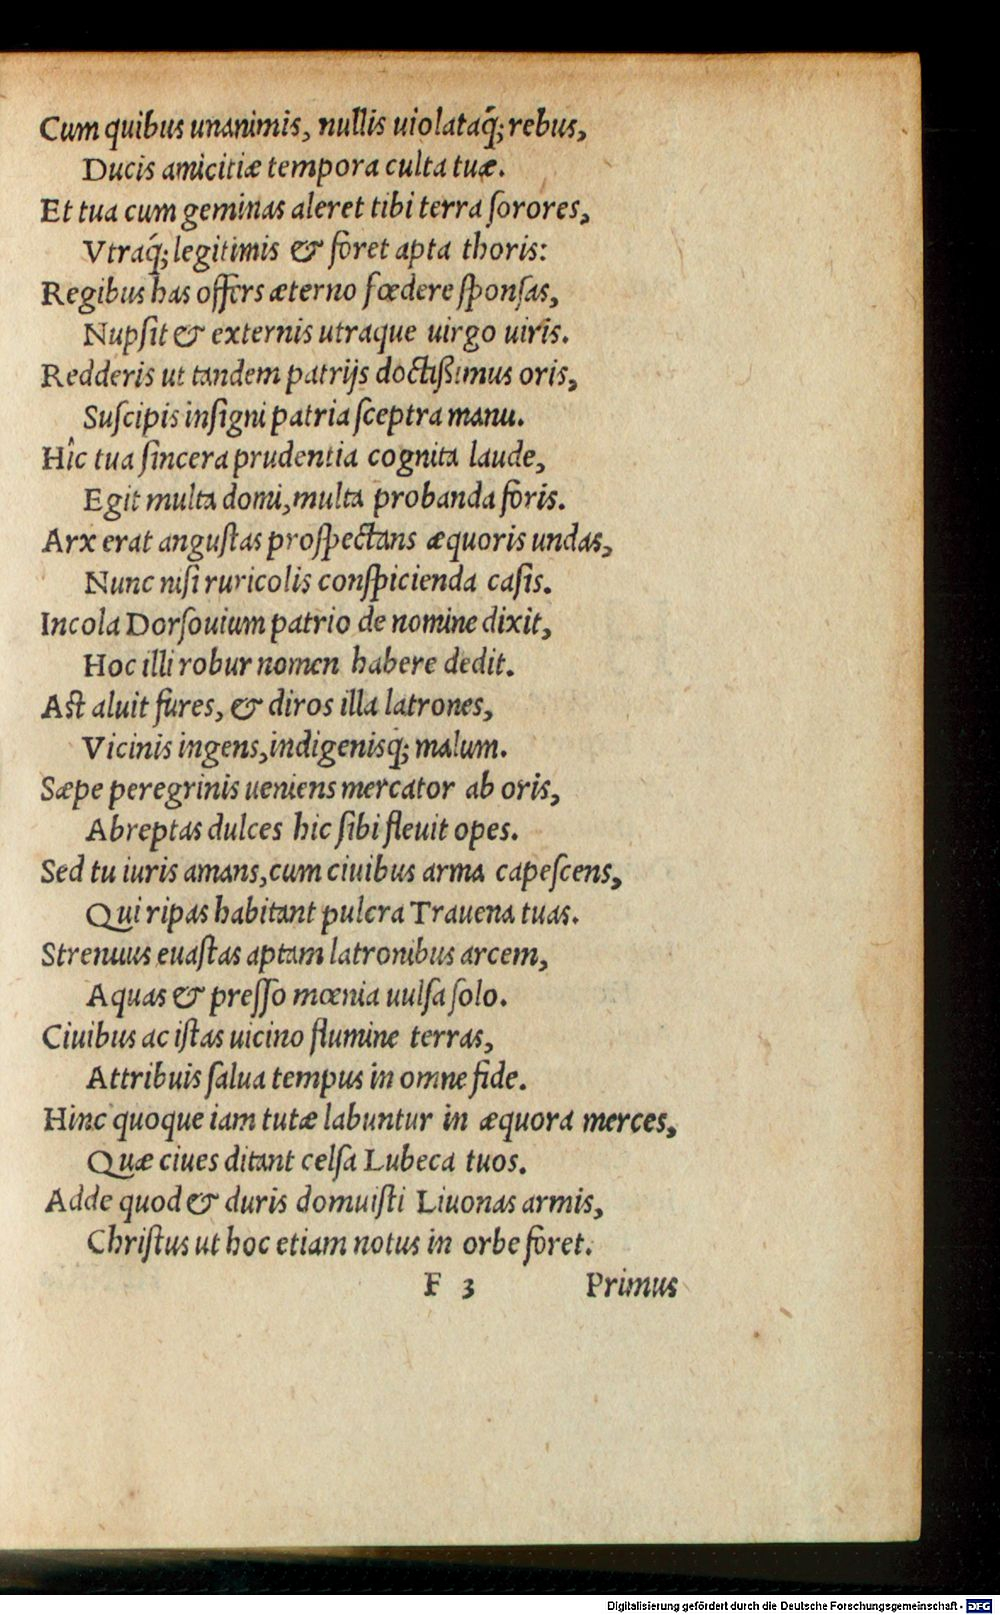 Cum quibus unanimis, nullis uiolataq́; rebus,
Ducis amicitiæ tempora culta tuæ.
Et tua cum geminas aleret tibi terra ſorores,
Vtraq́; legitimis & foret apta thoris:
Regibus has offers æterno fœdere ſponſas,
Nupſit & externis utraque uirgo uiris.
Redderis ut tandem patrijs doctißimus oris,
Suſcipis inſigni patria ſceptra manu.
Hîc tua ſincera prudentia cognita laude,
Egit multa domi, multa probanda foris.
Arx erat anguſtas proſpectans æquoris undas,
Nunc niſi ruricolis conſpicienda caſis.
Incola Dorſouium patrio de nomine dixit,
Hoc illi robur nomen habere dedit.
Aſt aluit fures, & diros illa latrones,
Vicinis ingens, indigenisq́; malum.
Sæpe peregrinis ueniens mercator ab oris,
Abreptas dulces hic ſibi fleuit opes.
Sed tu iuris amans, cum ciuibus arma capeſcens,
Qui ripas habitant pulcra Trauena tuas.
Strenuus euaſtas aptam latronibus arcem,
Aquas & preſſo mœnia uulſa ſolo.
Ciuibus ac iſtas uicino flumine terras,
Attribuis ſalua tempus in omne fide.
Hinc quoque iam tutæ labuntur in æquora merces,
Quæ ciues ditant celſa Lubeca tuos.
Adde quod & duris domuiſti Liuonas armis,
Chriſtus ut hoc etiam notus in orbe foret.
F 3 Primus
Digitalisierung gefördert durch die Deutsche Forschungsgemeinschaft - DFG